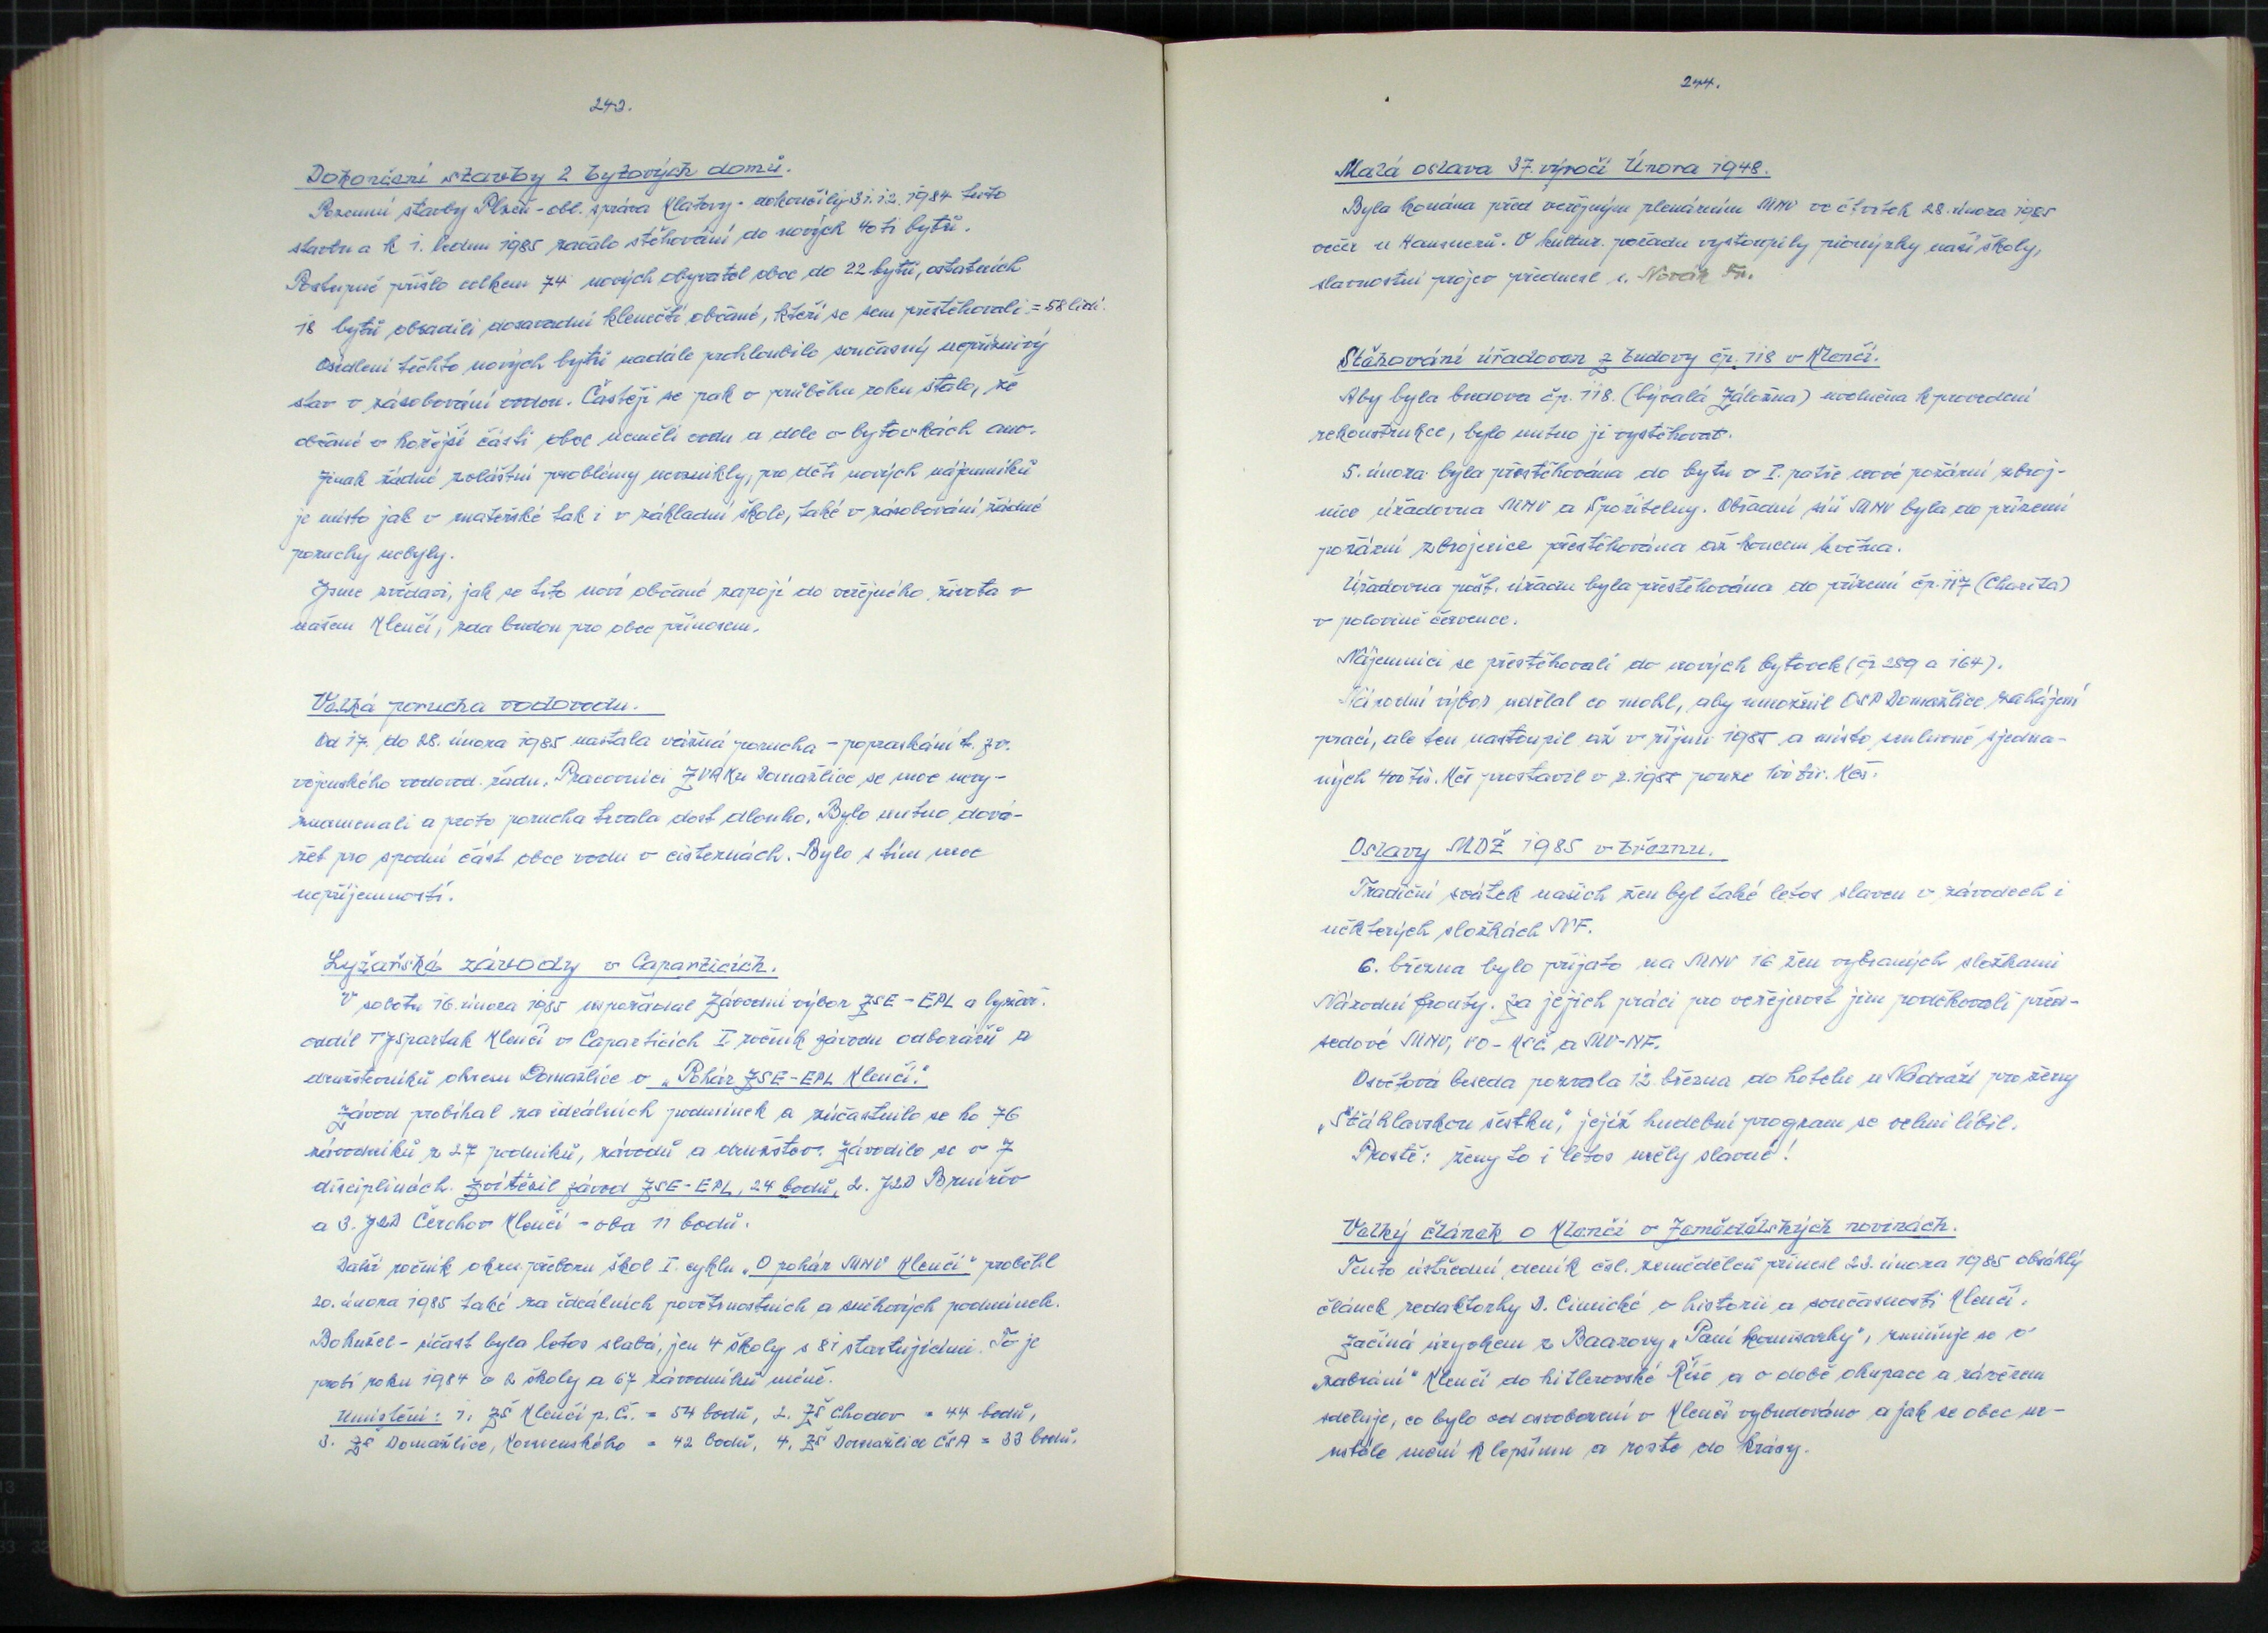 243.
Dokončení stavby 2 bytových domů.
Pozemní stavby Plzeň - obl. správa Klatovy - dokončily 31.12.1984 tuto
stavbu a k 1. lednu 1985 začalo stěhování do nových 40ti bytů.
Postupně přišlo celkem 74 nových obyvatel obce do 22 bytů, ostatních
18 bytů obsadili dosavadní klenečtí občané, kteří se sem přestěhovali = 58 lidí.
Osídlení těchto nových bytů nadále prohloubilo současný nepříznivý
stav v zásobování vodou. Častěji se pak v průběhu roku stalo, že
občané v hořejší části obce neměli vodu a dole v bytovkách ano.
Jinak žádné zvláštní problémy nevznikly, pro děti nových nájemníků
je místo jak v mateřské tak i v základní škole, také v zásobování žádné
poruchy nebyly.
Jsme zvědavi, jak se tito noví občané zapojí do veřejného života v
našem Klenčí, zda budou pro obec přínosem.
Velká porucha vodovodu.
Od 17. do 28. února 1985 nastala vážná porucha - popraskání t. zv.
vojenského vodovod. řadu. Pracovníci ZVAKu Domažlice se moc nevy-
znamenali a proto porucha trvala dost dlouho. Bylo nutno dová-
žet pro spodní část obce vodu v cisternách. Bylo s tím moc
nepříjemností.
Lyžařské závody v Caparticích.
V sobotu 16. února 1985 uspořádal Závodní výbor ZSE - EPL a lyžař.
oddíl TJ Spartak Klenčí v Caparticích I ročník závodu odborářů a
družstevníků okresu Domažlice o „Pohár ZSE - EPL Klenčí."
Závod probíhal za ideálních podmínek a zúčastnilo se ho 76
závodníků z 27 podniků, závodů a družstev. Závodilo se v 7
disciplinách. Zvítězil závod ZSE - EPL, 24 bodů, 2. JZD Pomírov
a 3. JZD Čerchov Klenčí - oba 11 bodů.
Další ročník okres. přeboru škol I. cyklu „O pohár MNV Klenčí" proběhl
20. února 1985 také za ideálních povětrnostních a sněhových podmínek.
Bohužel - účast byla letos slabá, jen 4 školy s 81 startujícími. To je
proti roku 1984 o 2 školy a 67 závodníků méně.
Umístění: 1. ZŠ Klenčí p. Č. = 54 bodů, 2. ZŠ Chodov = 44 bodů,
3. ZŠ Domažlice, Komenského = 42 bodů, 4. ZŠ Domažlice ČSA = 33 bodů.
244.
Malá oslava 37. výročí Února 1948.
Byla konána před veřejným plenárním MNV ve čtvrtek 28. února 1985
večer u Hausnerů. V kultur. pořadu vystoupily pionýrky naší školy,
slavnostní projev přednesl s. Novák Fr.
Stěhování úřadoven z budovy čp. 118 v Klenčí.
Aby byla budova čp. 118. (bývalá Záložna) uvolněna k provedení
rekonstrukce, bylo nutno ji vystěhovat.
5. února byla přestěhována do bytu v I. patře nové požární zbroj-
nice úřadovna MNV a Spořitelny. Obřadní síň MNV byla do přízemí
požární zbrojnice přestěhována až koncem května.
Úřadovna pošt. úřadu byla přestěhována do přízemí čp. 117 (Charita)
v polovině července.
Nájemníci se přestěhovali do nových bytovek (čp 289 a 164).
Národní výbor udělal co mohl, aby umožnil OSP Domažlice zahájení
prací, ale ten nastoupil až v říjnu 1985 a místo smluvně sjedna-
ných 400 tis. Kčs prostavil v r. 1985 pouze 100 tis. Kčs.
Oslavy MDŽ 1985 v březnu.
Tradiční svátek našich žen byl také letos slaven v závodech i
některých složkách NF.
6. března bylo přijato na MNV 16 žen vybraných složkami
Národní fronty. Za jejich práci pro veřejnost jim poděkovali před-
sedové MNV, VO - KSČ a MV - NF.
Osvětová beseda pozvala 12. března do hotelu u Nádraží pro ženy
„Šťáhlavskou šestku," jejíž hudební program se velmi líbil.
Prostě: ženy to i letos měly slavné!
Velký článek o Klenčí v Zemědělských novinách.
Tento ústřední deník čsl. zemědělců přinesl 23. února 1985 obsáhlý
článek redaktorky D. Cimické o historii a současnosti Klenčí.
Začíná úryvkem z Baarovy „Paní komisarky", zmiňuje se o
„zabrání" Klenčí do hitlerovské Říše a o době okupace a závěrem
sděluje, co bylo od osvobození v Klenčí vybudováno a jak se obec ne-
ustále mění k lepšímu a roste do krásy.